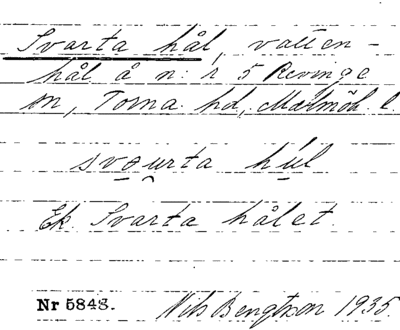 Svarta hål, vatten-
hål å n:r 5 Revinge
sn, Torna hd, Malmöh. l.
svaurta húl
Ek. Svarta hålet.
Nr 5848. Nils Bengtson 1935.